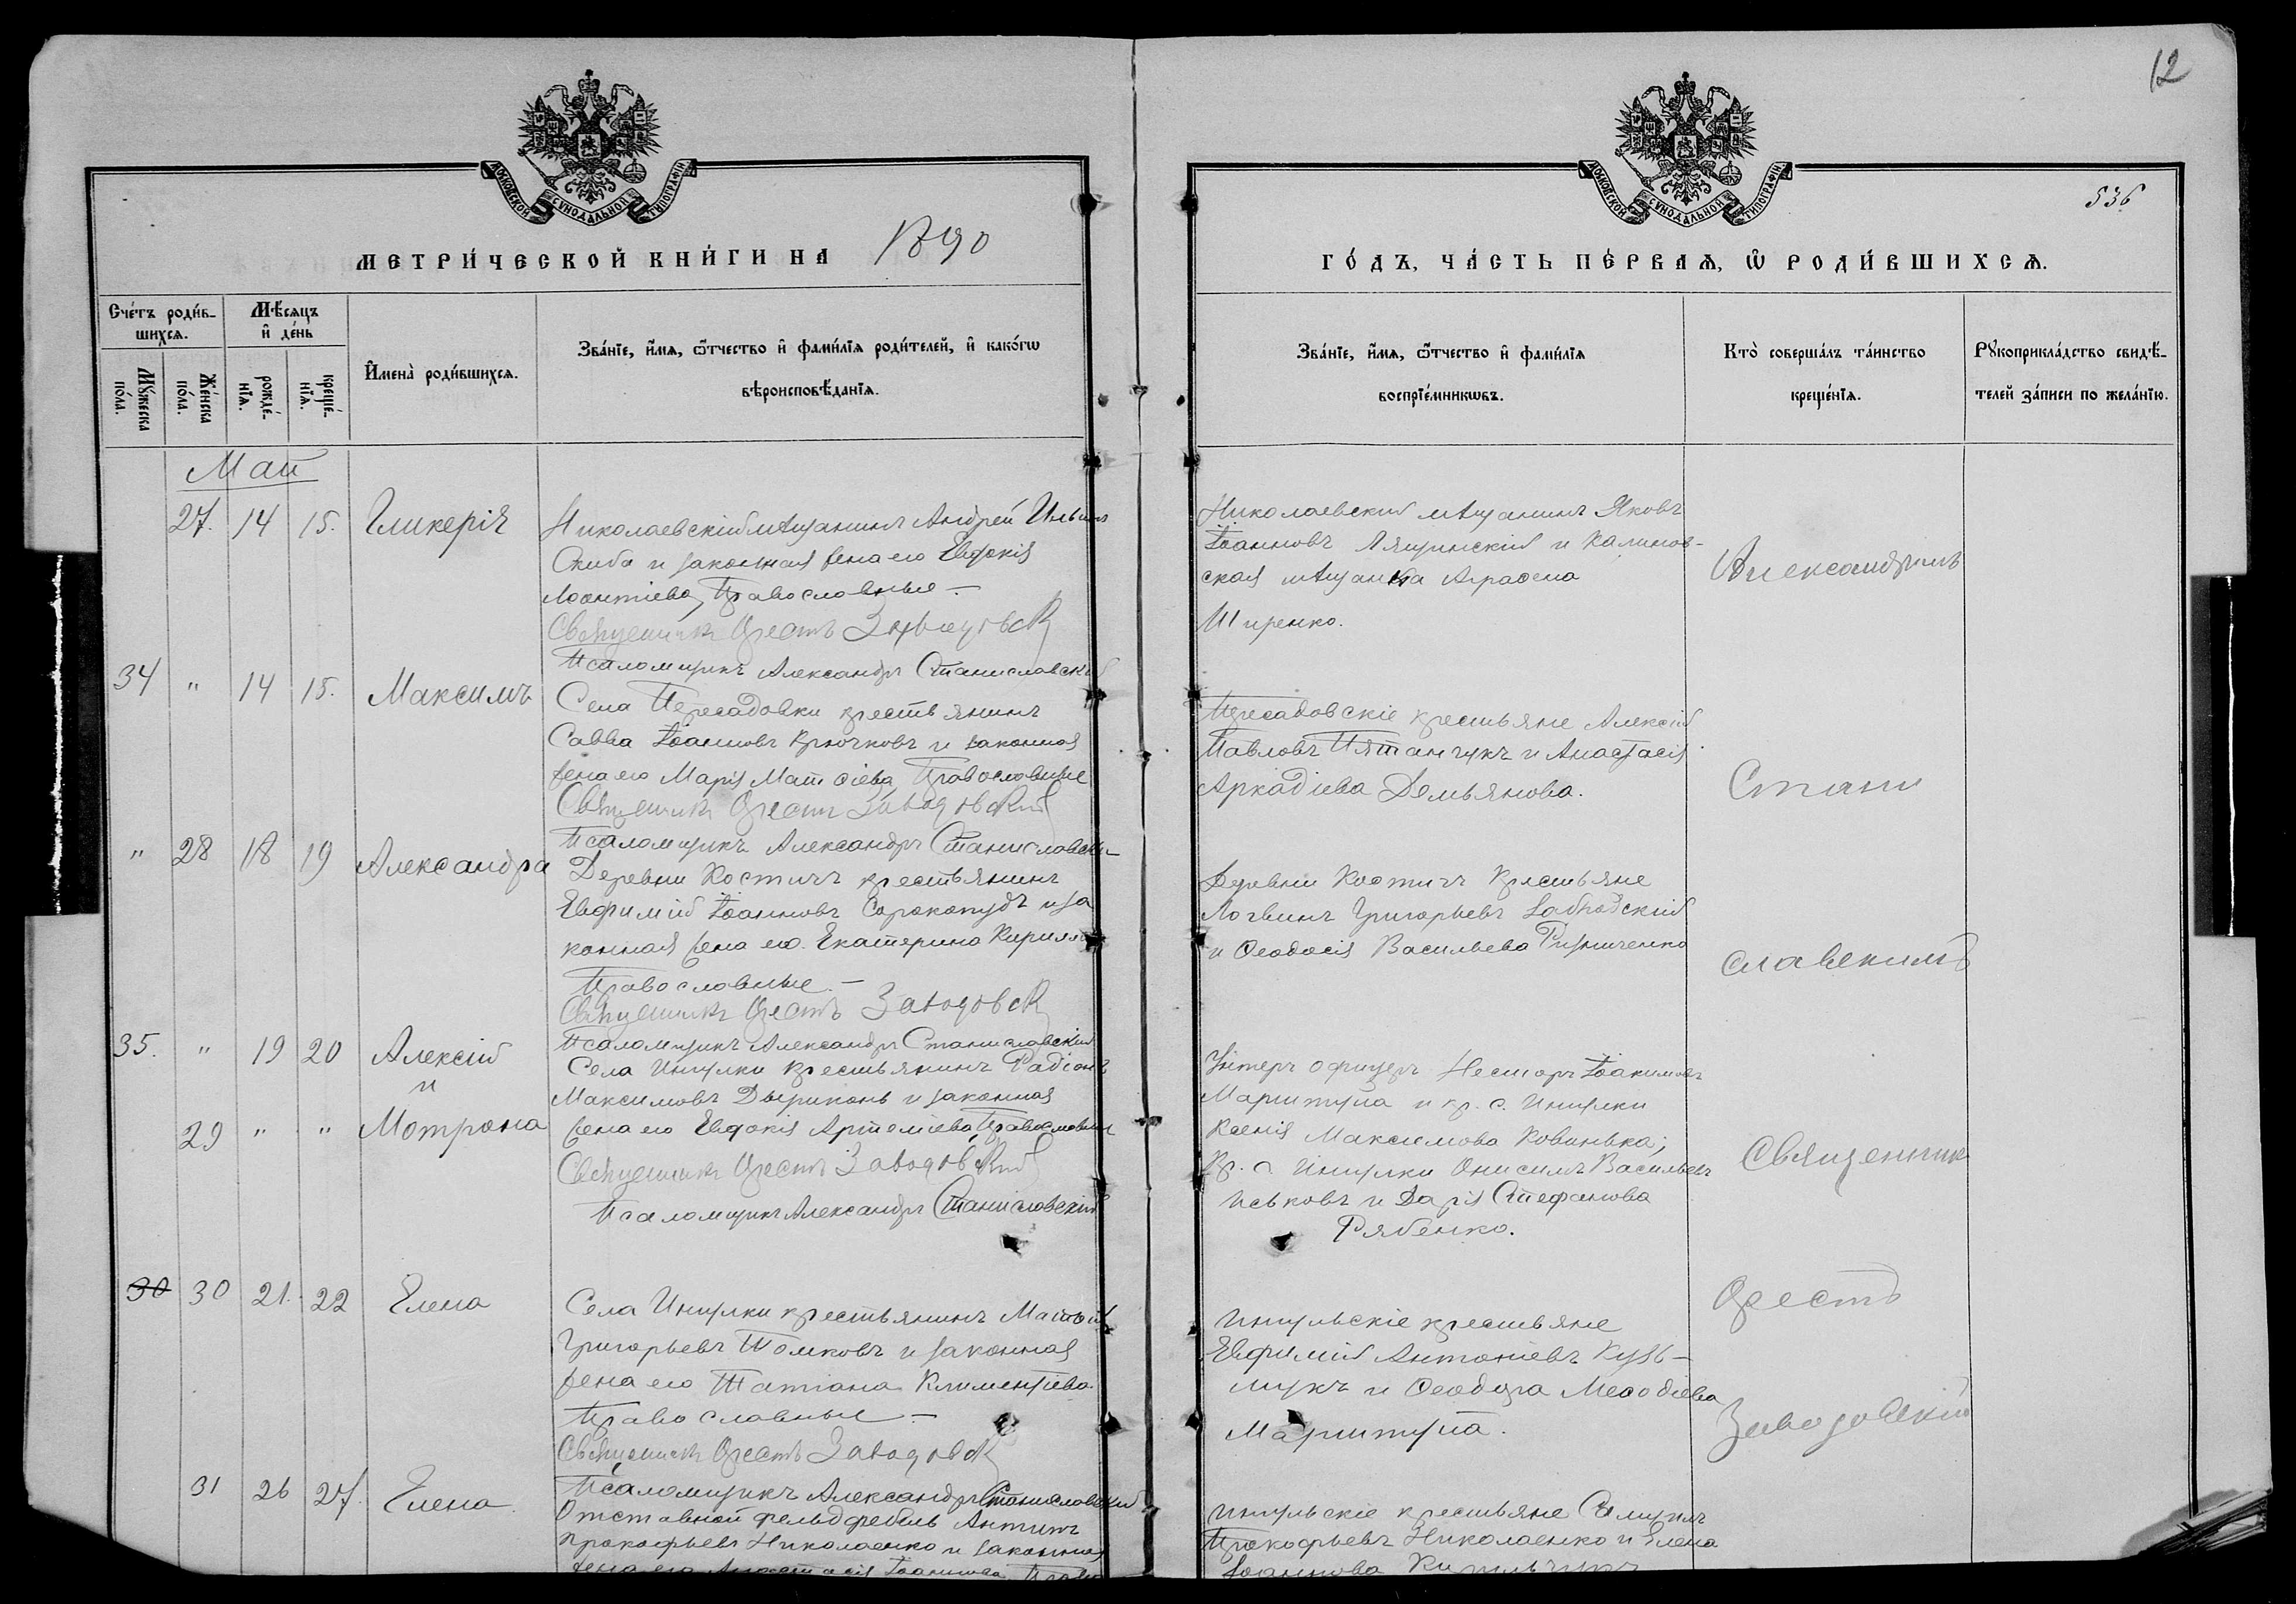 12
МОСКОВСКОЙ СѴНОДАЛЬНОЙ ТИПОГРАФІИ
МОСКОВСКОЙ СѴНОДАЛЬНОЙ ТИПОГРАФІИ
536
МЕТРИ́ЧЕСКОЙ КНИ́ГИ НА 1890
ГО́ДЪ, ЧА́СТЬ ПЕ́РВАѦ, Ѽ РОДИ́ВШИХСѦ.
Сче́тъ роди́в-
шихсѧ.
Мꙋ́жеска по́ла.
Же́нска по́ла.
Мѣ́сѧцъ
и҆ де́нь
рожде́-
нїѧ.
креще́-
нїѧ.
И҆мена̀ роди́вшихсѧ.
Зва́нїе, и҆́мѧ, ѻ҆́тчество и҆ фами́лїѧ роди́телей, и҆ како́гѡ
вѣроисповѣ́данїѧ.
Зва́нїе, и҆́мѧ, ѻ҆́тчество и҆ фами́лїѧ
воспрїе́мникѡвъ.
Кто̀ соверша́лъ та́инство
креще́нїѧ.
Рꙋкоприкла́дство свидѣ́-
телей за́писи по жела́нїю.
Май
27. 14 15. Гликерія
Николаевскій мѣщанинъ Андрей Ильинъ
Скиба и законная жена его Евдокія
Леонтіева, Православные. –
Священникъ Орестъ Заводовск
Псаломщикъ Александръ Станиславскій
Николаевскій мѣщанинъ Яковъ
Іоанновъ Лящинскій и Калинов-
ская мѣщанка Агафена
Ширенко.
Александръ
34 " 14 15. Максимъ
Села Пересадовки крестьянинъ
Савва Іоанновъ Крючковъ и законная
жена его Марія Матѳіева, Православные
Священникъ Орестъ Заводовскій
Псаломщикъ Александръ Станиславскі
Пересадовскіе крестьяне Алексій
Павловъ Пятанчукъ и Анастасія
Аркадіева Демьянова.
Стани
" 28 18 19 Александра
Деревни Костичъ крестьянинъ
Евфимій Іоанновъ Сорокопудъ и за
конная жена его Екатерина Кирилл
Православные. –
Священникъ Орестъ Заводовск
Псаломщикъ Александръ Станиславскій
Деревни Костичъ крестьяне
Логвинъ Григорьевъ Забродскій
и Ѳеодосія Васильева
славскимъ
35. " 19 20 Алексій
и
29 " " Мотрона
Села Ингулки крестьянинъ Радіонъ
Максимовъ и законная
жена его Евдокія Артеміева, Православные
Священникъ Орестъ Заводовскій
Псаломщикъ Александръ Станиславскій
Унтеръ офицеръ Несторъ Іоакимовъ
Маршитупа и кр. с. Ингулки
Ксенія Максимова Ковинька;
Кр. с Ингулки Онисимъ Васильевъ
Иськовъ и Дарія Стефанова
Рябенко.
Священник
30 30 21. 22 Елена
Села Ингулки крестьянинъ Матѳій
Григорьевъ Томковъ и законная
жена его Татіана Климентіева
Православные –
Священникъ Орестъ Заводовск
Псаломщикъ Александръ Станиславскій
Ингульскіе крестьяне
Евфимій Антоніевъ Кузь-
мукъ и Ѳеодора Меѳодіева
Маршитупа.
Орестъ
Заводовскій
31 26 27. Елена.
Отставной фельдфебель Антипъ
Прокофьевъ Николаенко и законная
жена его Анастасія Іоаннова, Право
Ингульскіе крестьяне Самуилъ
Прокофьевъ Николаенко и Елена
Іоаннова